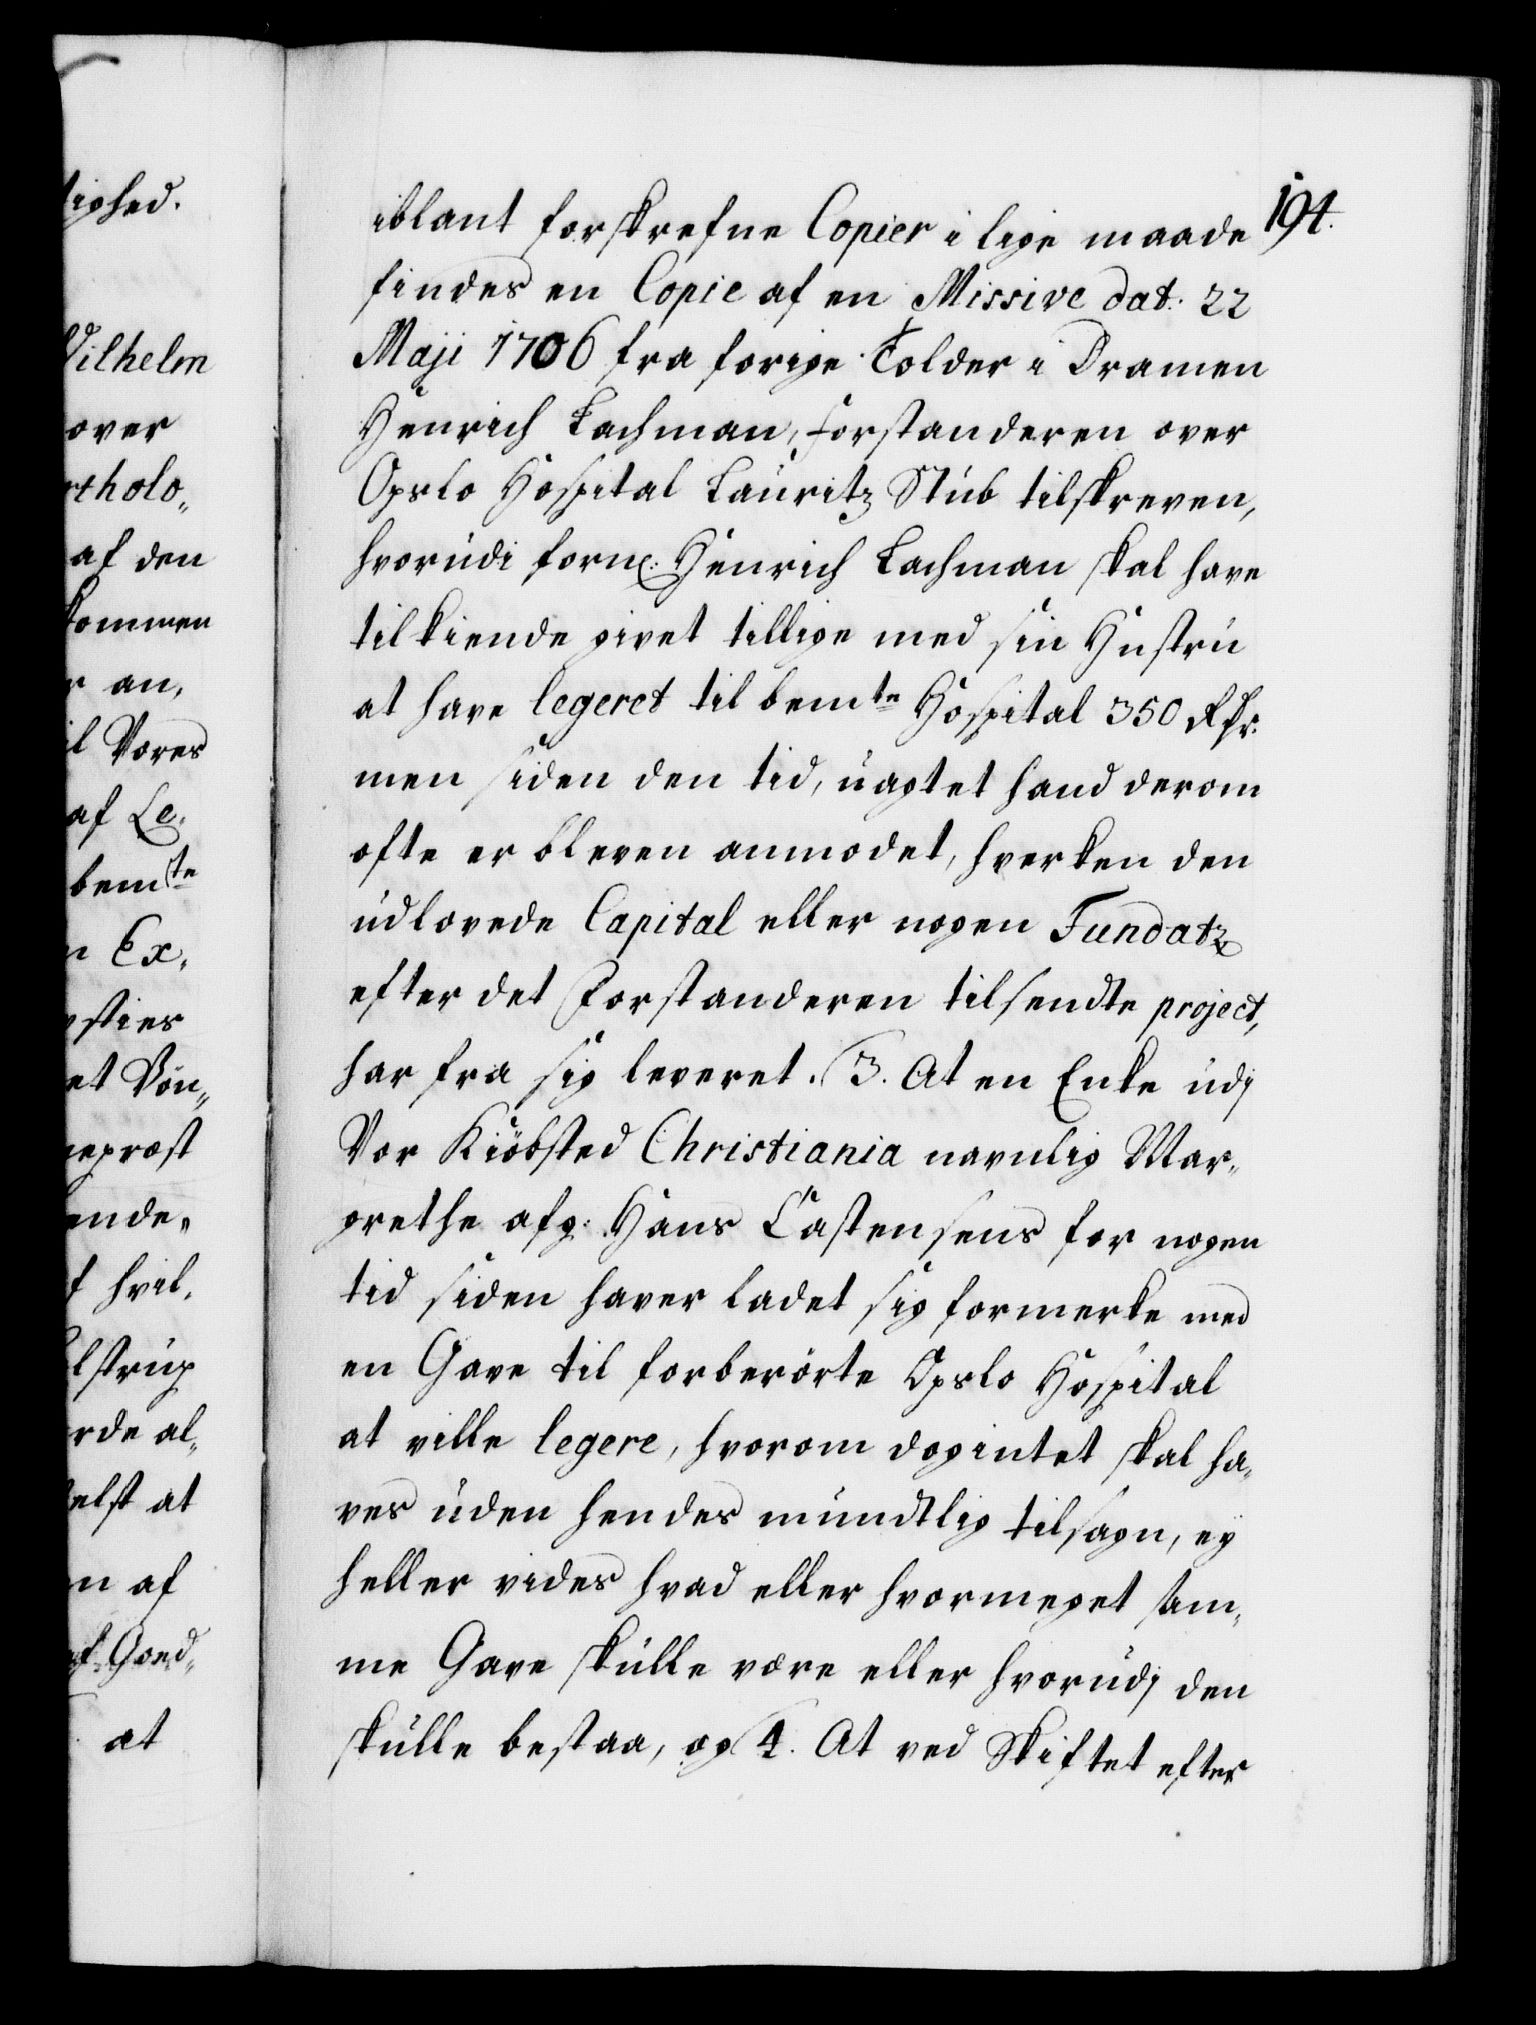 tighed.
Vilhelm
over
rtholo„
af den
kommen
r an,
il Vores
af Le„
bemte
n Ex„
et Von„
neprost
ende„
f hvil„
lstrup
rde al„
helst at
n af
at
194.
iblant forskrefne Copier i lige maade
findes en Copie af en Missive dat: 22
Maji 1706 fra forige Tolder i Dramen
Henrich Lachman, forstanderen over
Opslo Hospital Lauritz Stub tilskreven,
hvorudi forne: Henrich Lachman skal have
tilkiende givet tillige med sin Hustru
at have legeret til bemte Hospital 350 Rdr.
men siden den tid, uagtet hand derom
ofte er bleven anmodet, hverken den
udlovede Capital eller nogen Fundatz
efter det Forstanderen tilsendte project,
har fra sig leveret. 3. At en Enke udj
Vor Kiöbsted Christiania navnlig Mar„
grethe afg: Hans Castensens for nogen
tid siden haver ladet sig formerke med
en Gave til forberörte Opslo Hospital
at ville legere, hvorom dogintet skal ha„
ves uden hendes mundtlig tilsagn, ey
heller vides hvad eller hvormeget sam„
me Gave skulle være eller hvorudj den
skulle bestaa, og 4. At ved Skiftet efter